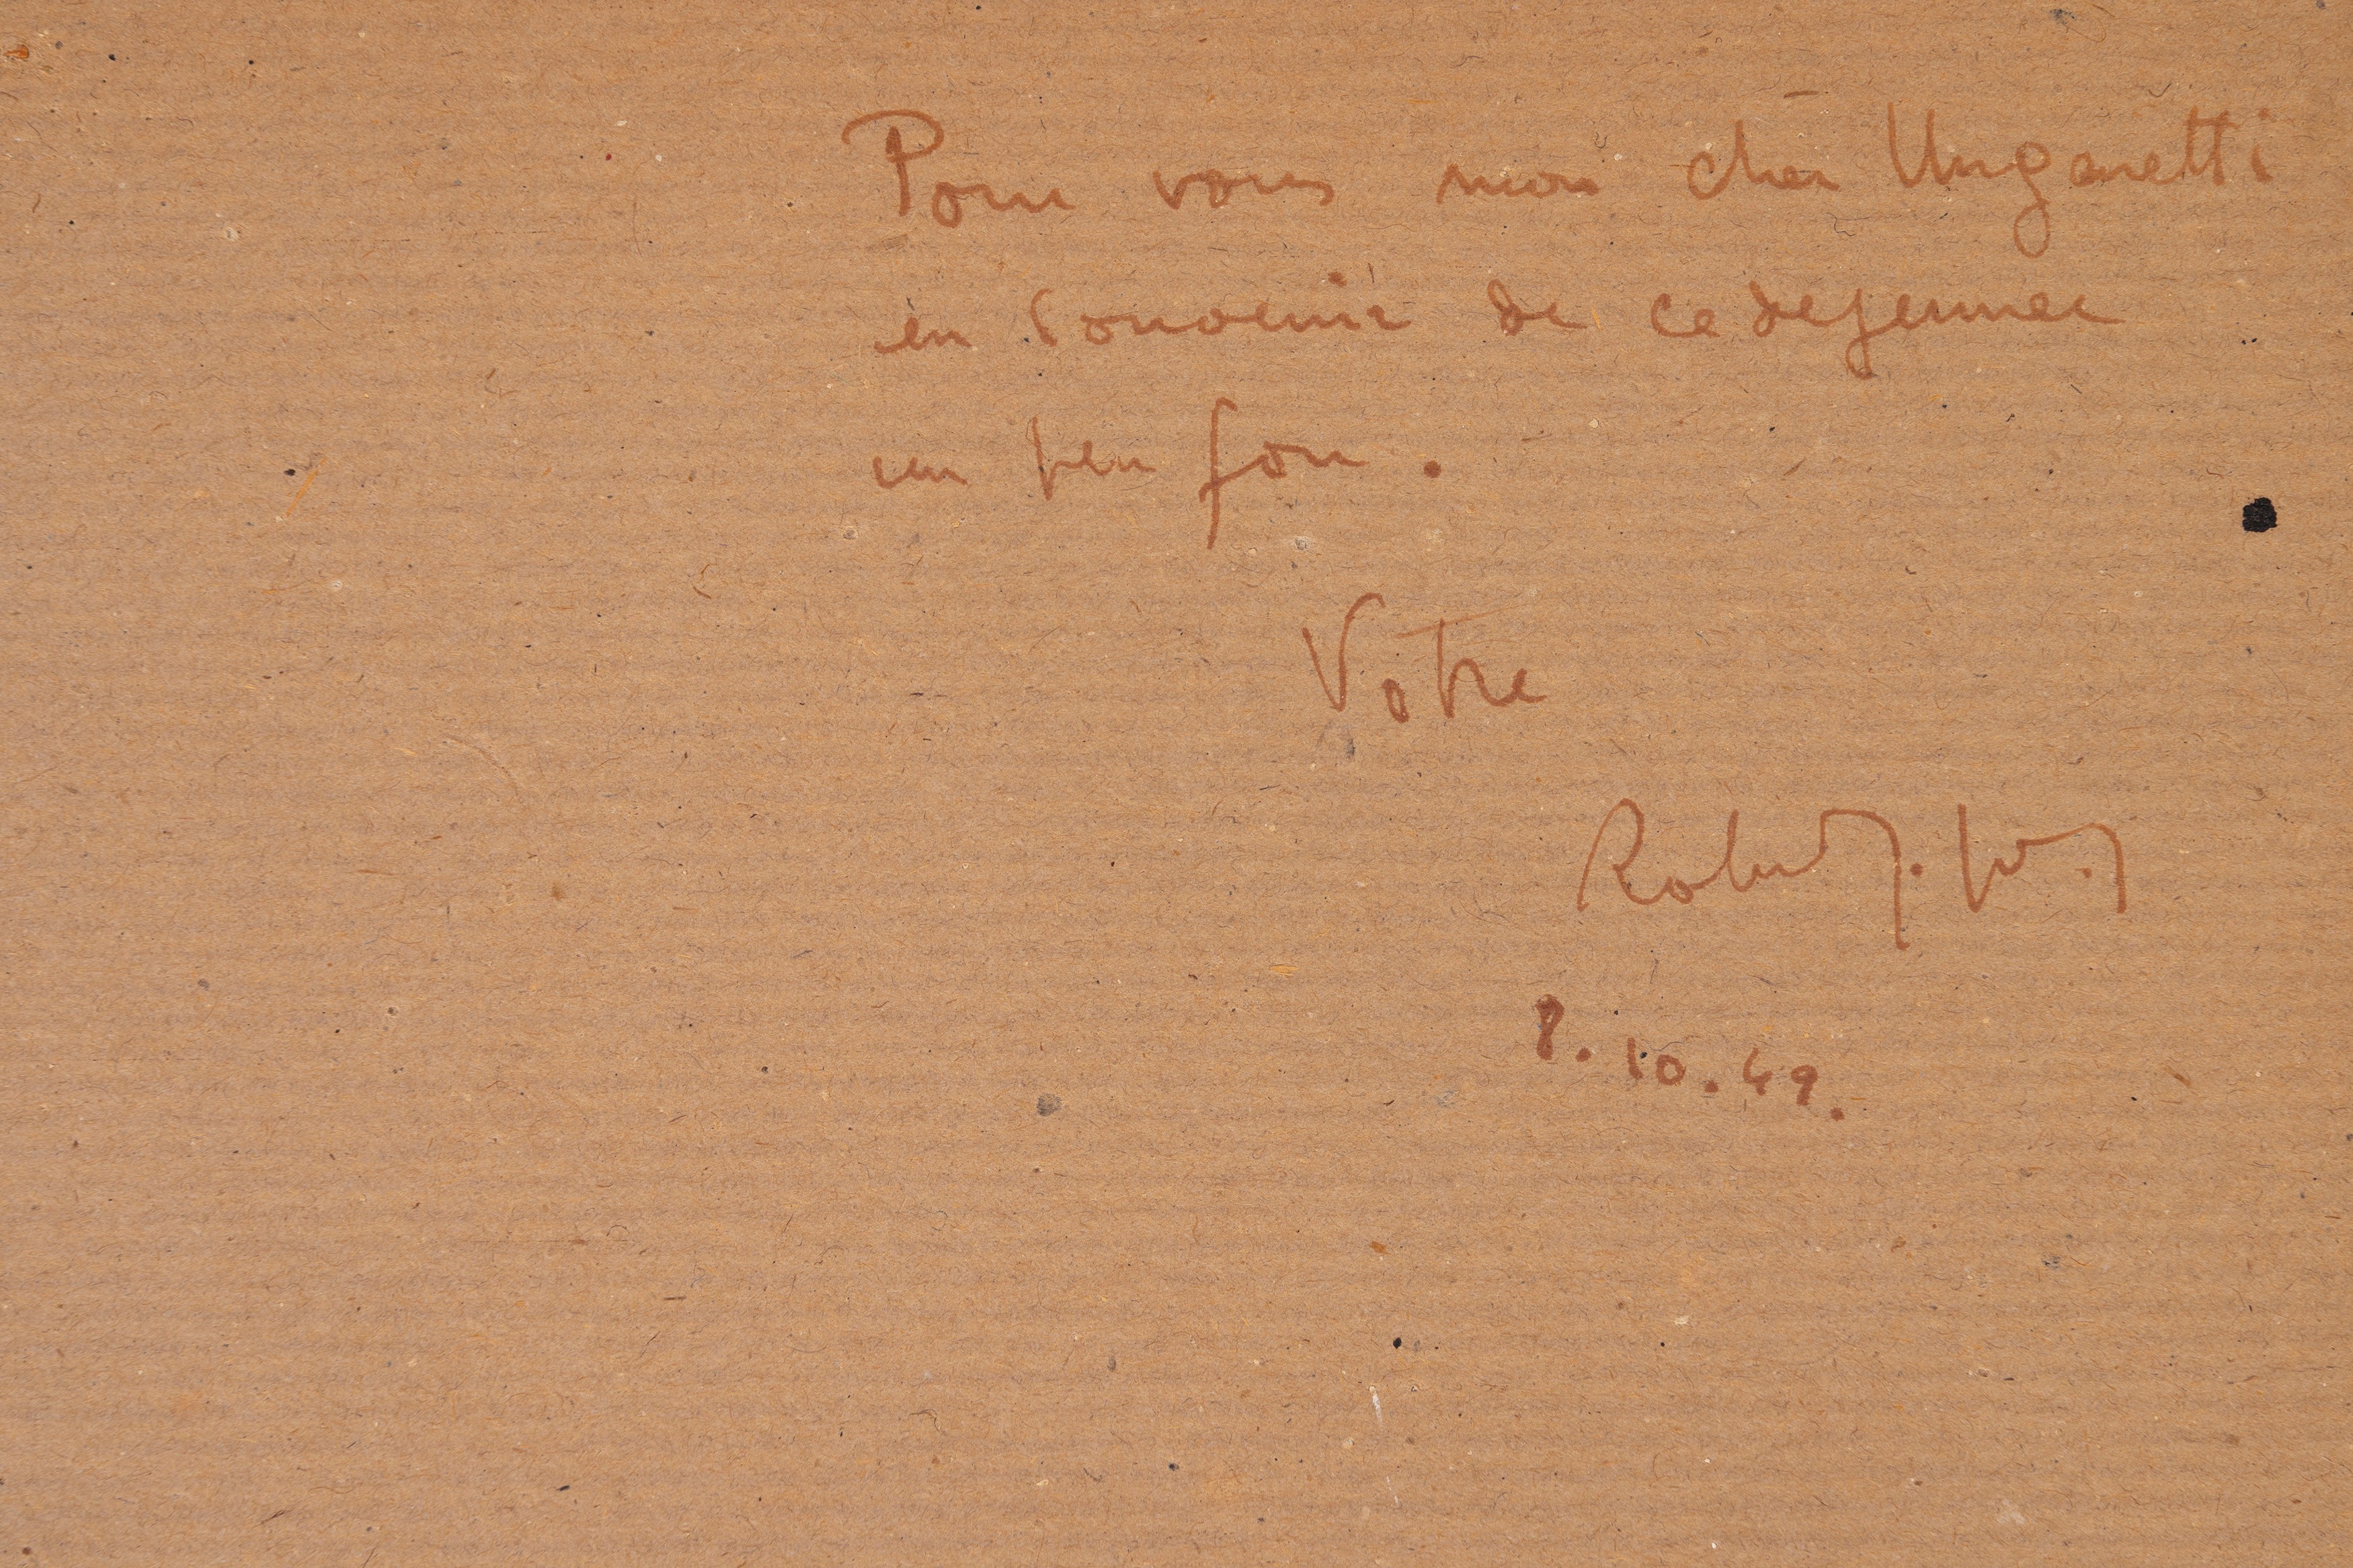 Pour vous mon cher Ungaretti
en souvenir de ce dejeuner
un peu fou.
Votre
Robert J. W. J
8.10.49.